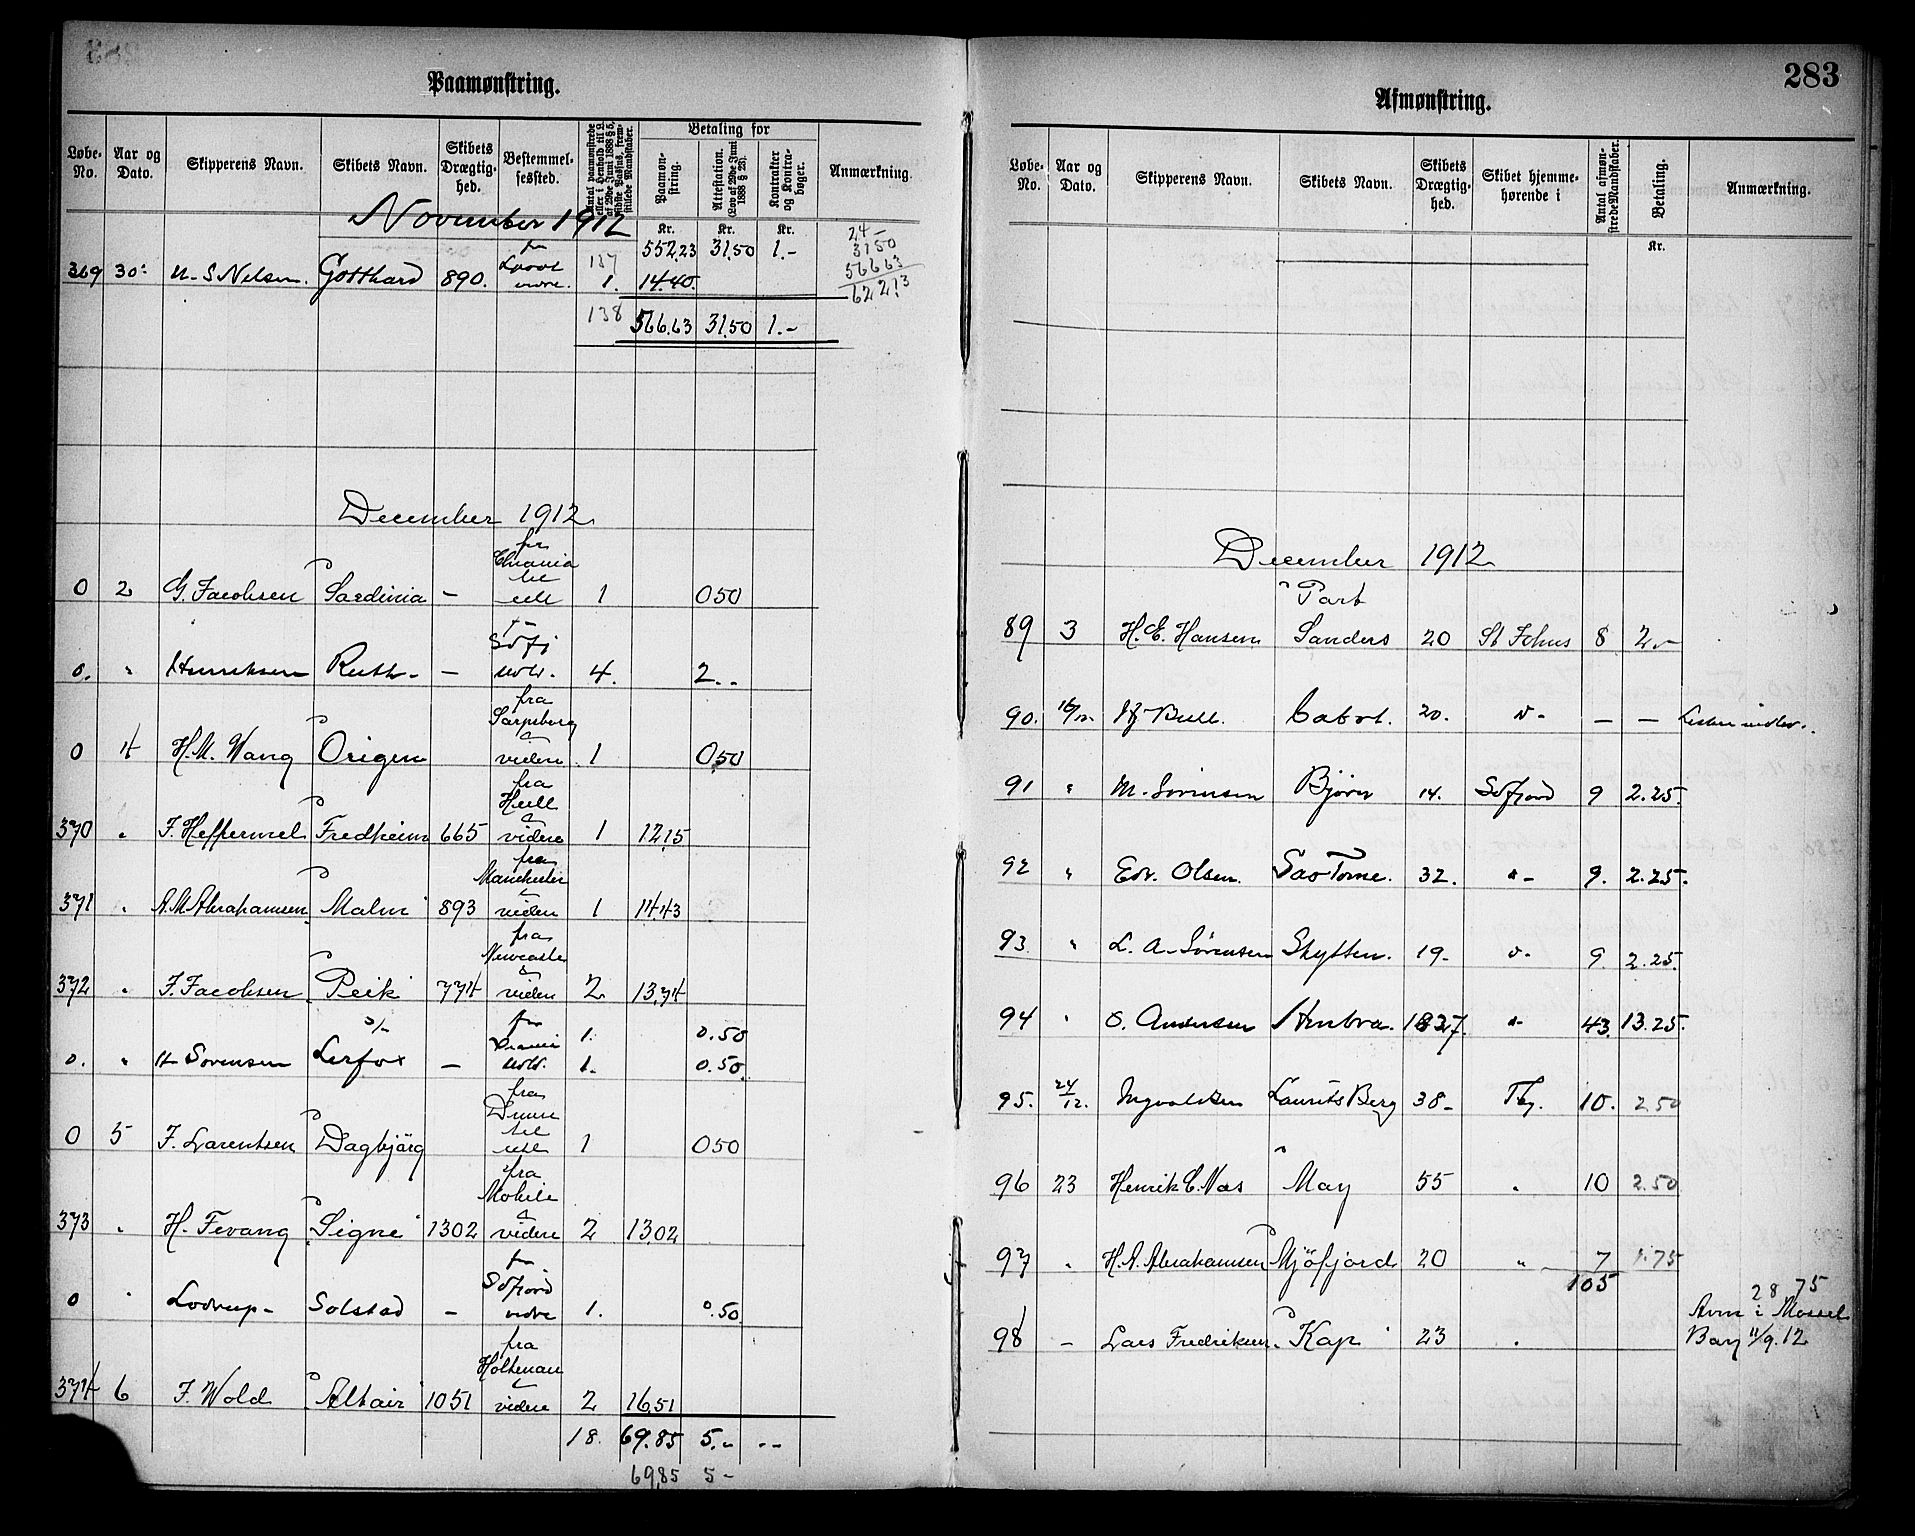 283
Paamønstring.
Løbe-No. Aar og Dato. Skipperens Navn. Skibets Navn. Skibets Drægtighed. Bestemmelsessted. Antal paamønstrede eller i Henhold til 2 af 29de Juni 1888 § 5, sidste Passus, fremstillede Mandskaber. Betaling for Paamønstring. Attestation. (Lov af 29de Juni 1888 § 23). Kontrakter og Kontrabøger. Anmærkning.
November 1912
Kr. Kr. Kr.
137 552,23 31,50 1.-
24-
31 50
566 63
622,13
369 30 N. S Nelsen. Gotthard 890. 1. 14.40.
138 566.63 31,50 1.-
December 1912
0 2 G. Jacobsen Sardinia - fra til 1 0 50
0. " Henriksen Ruth - 4. 2..
0 4 H. M. Wang Origen fra Sarpsborg videre 1 0,50
370 " J. Heffermel Fredheim 665 fra Hull videre 1 12,15
371 " A. M Abrahamsen "Malm" 893 fra Manchester viden 1 14,43
372 " J. Jacobsen "Peik" 774 fra Newcastle viden 2 13,74
s/s fra 1. 0.50
0. " H Sorensen Lerfos - 1. 0.50.
0 5 J. Larentsen Dagbjörg fra til 1 0 50
373 " H. Fevang "Signe" 1302 fra Mobile videre 2 13,02
0 " Lodrup - Solstad - Søfjord 1. 0.50
374 6 J. Wold "Altair" 1051 fra Holtenau videre 2 16,51
18. 69.85 5.- .-
69,85 5-
Afmønstring.
Løbe-No. Aar og Dato. Skipperens Navn. Skibets Navn. Skibets Drægtighed. Skibet hjemmehørende i Antal afmønstrede Mandskaber. Betaling. Anmærkning.
Kr.
December 1912
89 3 H. E. Hansen "Port Sanders 20 St Johns 8 2.-
90. 16/12 Hj Bull. Cabot. 20. - -
91 " M. Sørensen Bjørn 14. Søfjord 9 2.25.
92 " Edv. Olsen. Sao Tome. 32. "- 9. 2.25.
93. " L. A. Sørensen Skytten. 19- 9. 2.25.
94 " O. Andersen 43. 13.25.
95. 24/12. Ingvaldsen Laurits Berg 38- Tbg. 10. 2.50
96 23 Henrik C. Næs "May 55 " 10 2.50
97 " H. A. Abrahamsen Mjöfjord 20 " 7 1.75
105
28 75
98 - Lars Fredriksen. "Kap" 23 " Avm i Mossel
Bay 11/9. 12